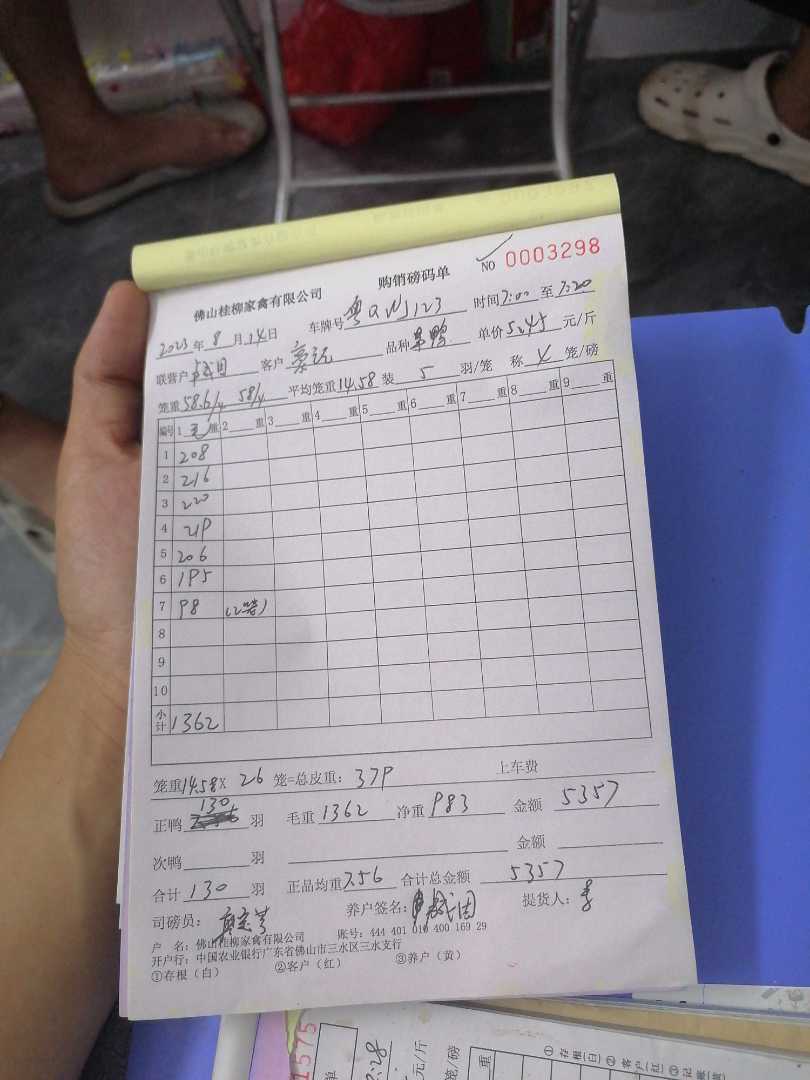 购销磅码单
NO 0003298
佛山桂柳家禽有限公司
2023年8月14日 车牌号 123 时间7:00至7:20
联营户 客户 品种 单价5.45元/斤
笼重58.6/4 58/4 平均笼重14.58 装5羽/笼 称4笼/磅
编号 1毛重 2重 3重 4重 5重 6重 7重 8重 9重
1 208
2 216
3 220
4 219
5 206
6 195
7 98 (2笼)
8
9
10
小计 1362
笼重14.58X 26笼=总皮重：379 上车费
正鸭130羽 毛重1362 净重983 金额5357
次鸭 羽 金额
合计130羽 正品均重7.56 合计总金额5357
司磅员： 养户签名： 提货人：
户 名：佛山桂柳家禽有限公司 账号：444 401 010 400 169 29
开户行：中国农业银行广东省佛山市三水区三水支行
①存根（白） ②客户（红） ③养户（黄）
1575
单
元/斤
笼/磅
重
①存根(白)②客户(红)③记